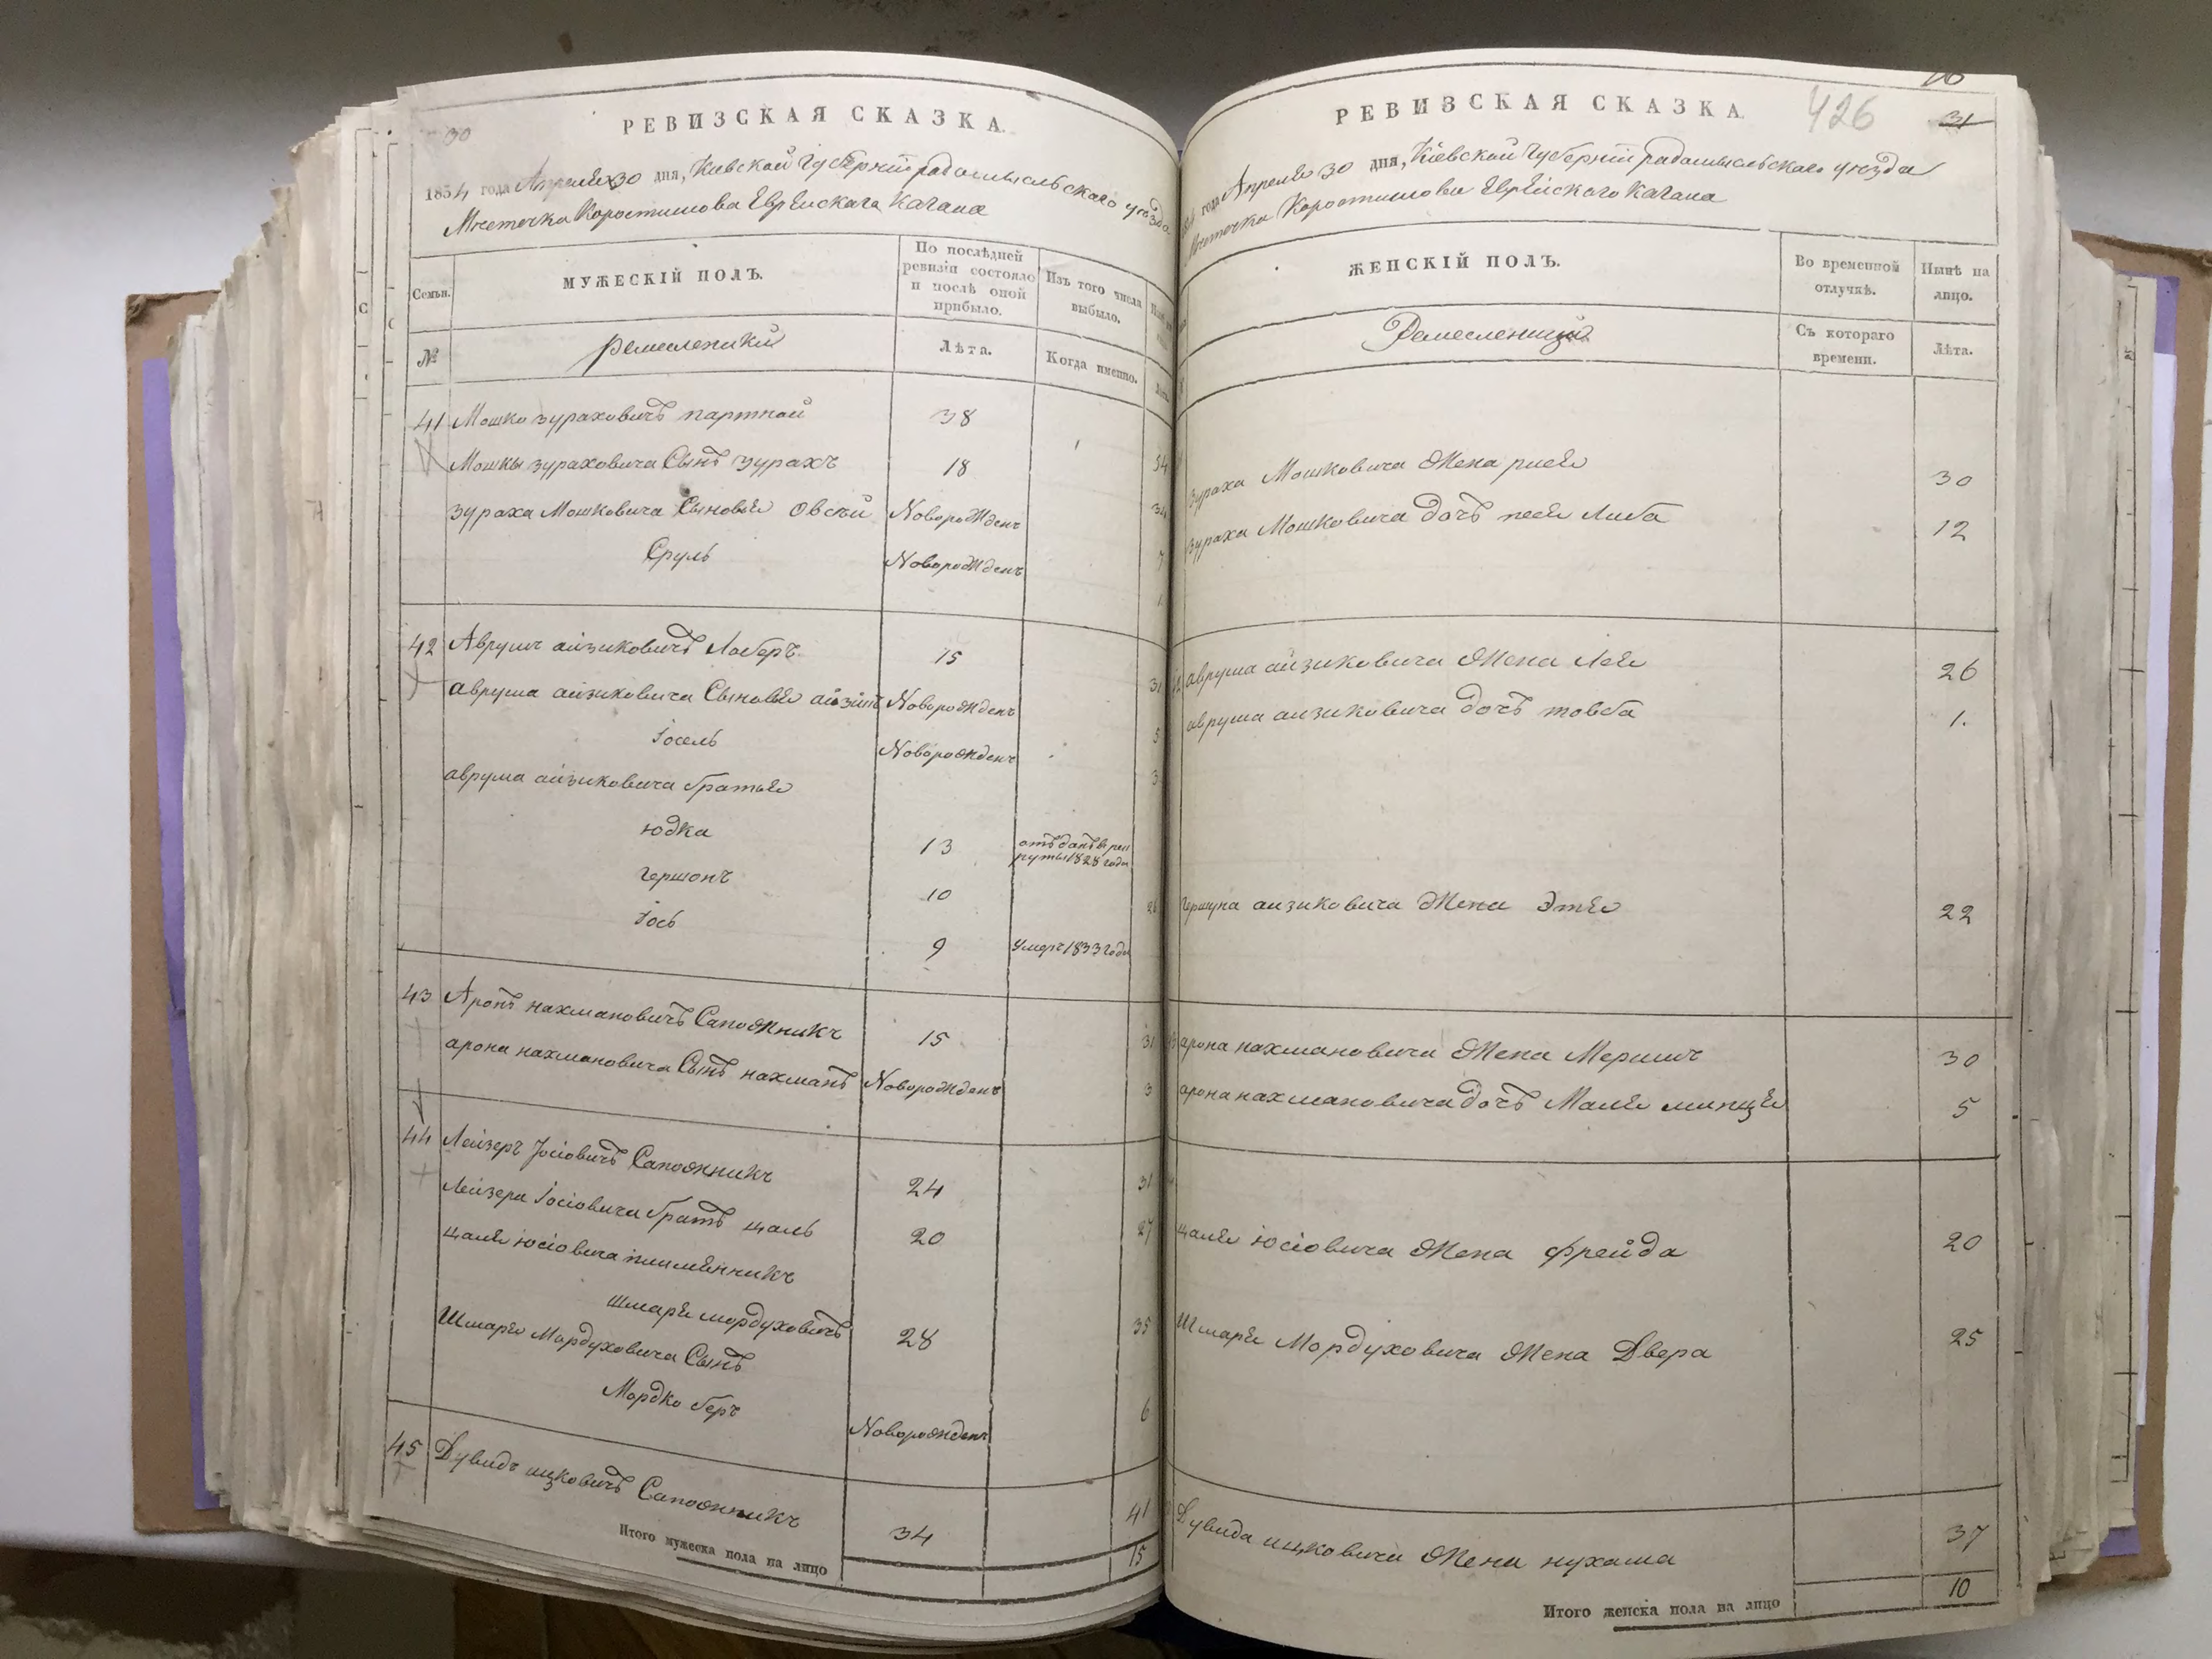 30
РЕВИЗСКАЯ СКАЗКА.
1834 года Апреля 30 дня, Киевской Губернiи радомысльскаго уезда
Местечка Коростишова Еврейскаго Кагала
Семьи.
МУЖЕСКІЙ ПОЛЪ.
По послѣдней ревизіи состояло и послѣ оной прибыло.
Изъ того числа выбыло.
№
ремесленики
Лѣта.
Когда именно.
Лѣта.
41 Мошко зураховичъ партной 38
Мошкы зураховича Сынъ зурахъ 18 34
зураха Мошковича Сыновья Овсѣй Новорожденъ
Сруль Новорожденъ
42 Аврумъ айзиковичъ Лаберъ 15 31
аврума айзиковича Сыновья айзикъ Новорожденъ 5
Iосель Новорожденъ 3
аврума айзиковича братья
юдка 13 отъданъ в рекруты 1828 года
гершонъ 10
Iось 9 умеръ 1833 года
43 Аронъ нахмановичъ Сапожникъ 15 31
арона нахмановича Сынъ нахманъ Новорожденъ 3
44 Лейзеръ Iосiовичъ Сапожникъ 24 31
Лейзера Iосiовича братъ цаль 20 27
цаля юсiовича племенникъ
шмаря мордуховичъ 28 35
Шмаря Мордуховича Сынъ
Мордко беръ Новорожденъ 6
45 Дувидъ ицковичъ Сапожникъ 34 41
Итого мужеска пола на лицо 15
426
31
РЕВИЗСКАЯ СКАЗКА.
года Апреля 30 дня, Кiевской Губернiи радомысльскаго уезда
Местечка Коростишова Еврейскаго Кагала
ЖЕНСКІЙ ПОЛЪ.
Во временной отлучкѣ.
Нынѣ на лицо.
Ремесленицы
Съ котораго времени.
Лѣта.
зураха Мошковича Жена рися 30
зураха Мошковича дочъ песя Либа 12
аврума айзиковича Жена Лея 26
аврума аизиковича дочъ товба 1.
гершуна аизиковича Жена Этя 22
арона нахмановича Жена Меримъ 30
арона нахмановича дочъ Маля минця 5
цаля юсiовича Жена фрейда 20
Шмаря Мордуховича Жена Двера 25
Дувида ицковича Жена нухама 37
Итого женска пола на лицо 10